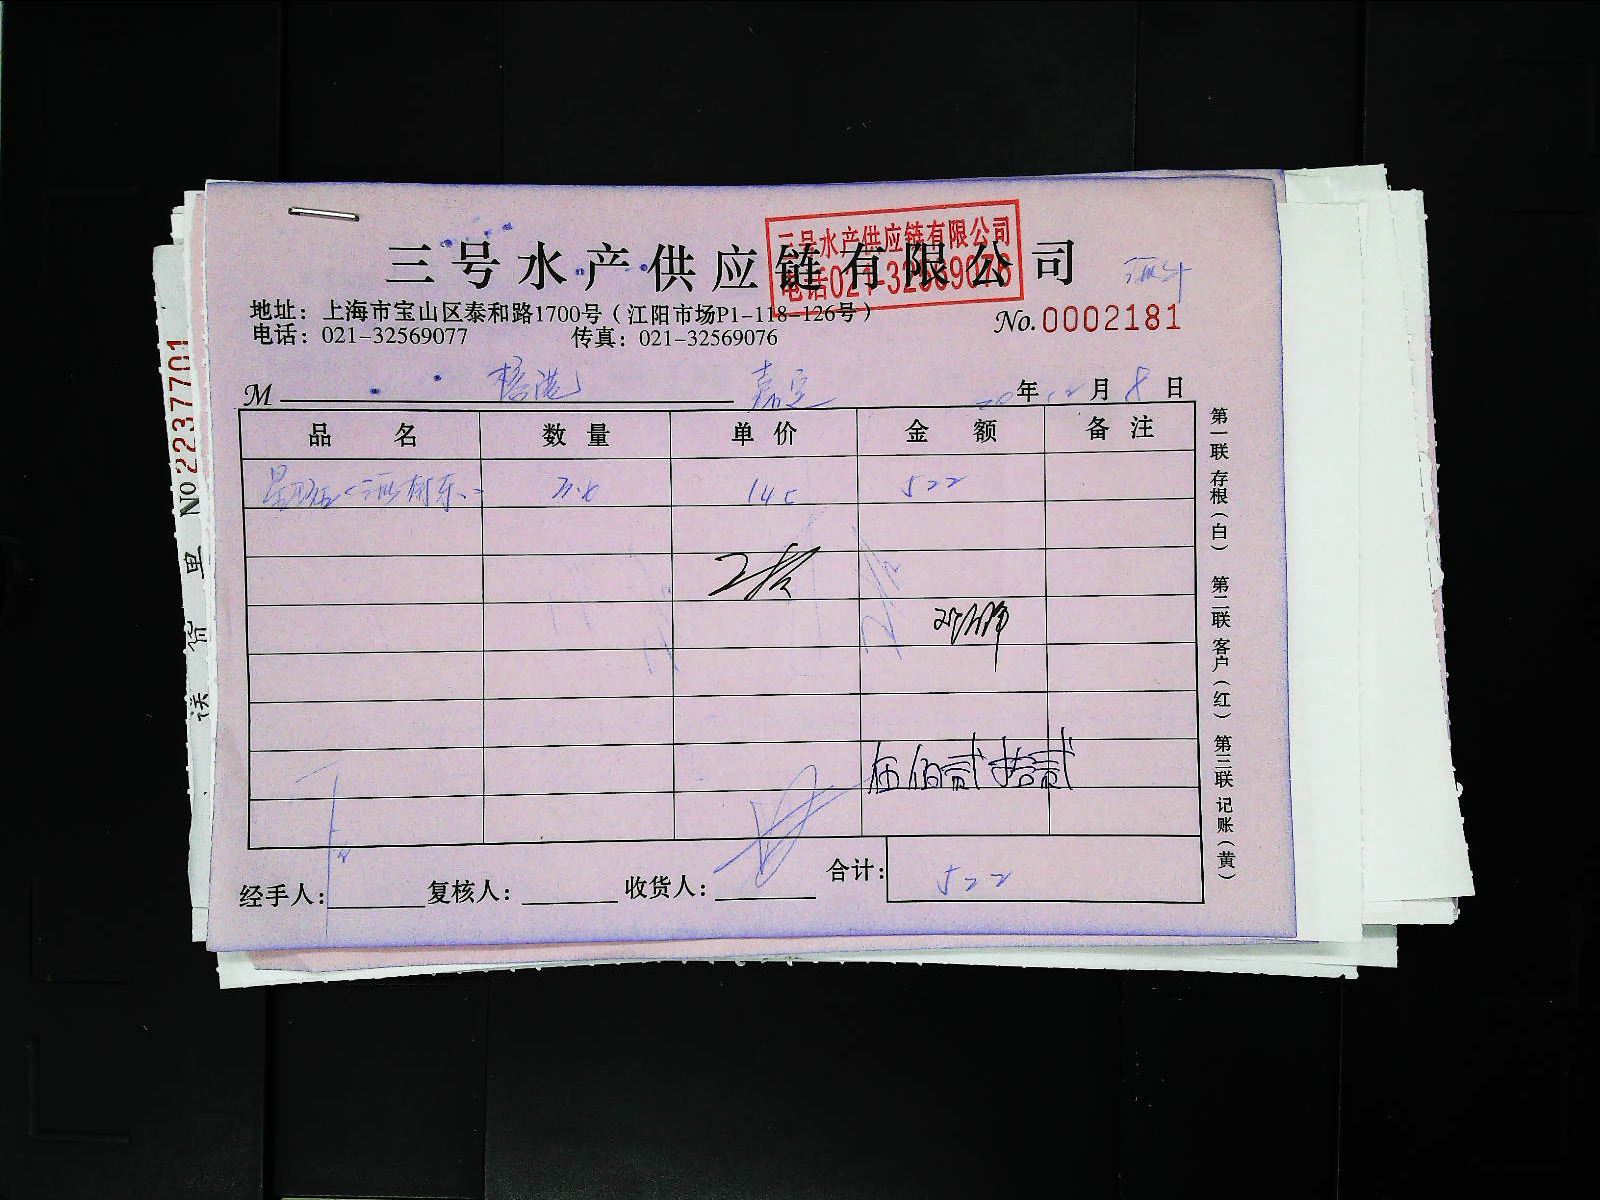 三号水产供应链有限公司
三号水产供应链有限公司
电话021-32569076
地址：上海市宝山区泰和路1700号（江阳市场P1-118-126号）
电话：021-32569077 传真：021-32569076
No.0002181
M 嘉定 20年12月8日
品名 数量 单价 金额 备注
522
伍佰贰拾贰
合计：522
经手人： 复核人： 收货人：
第一联 存根（白） 第二联 客户（红） 第三联 记账（黄）
送货单 No 2237701